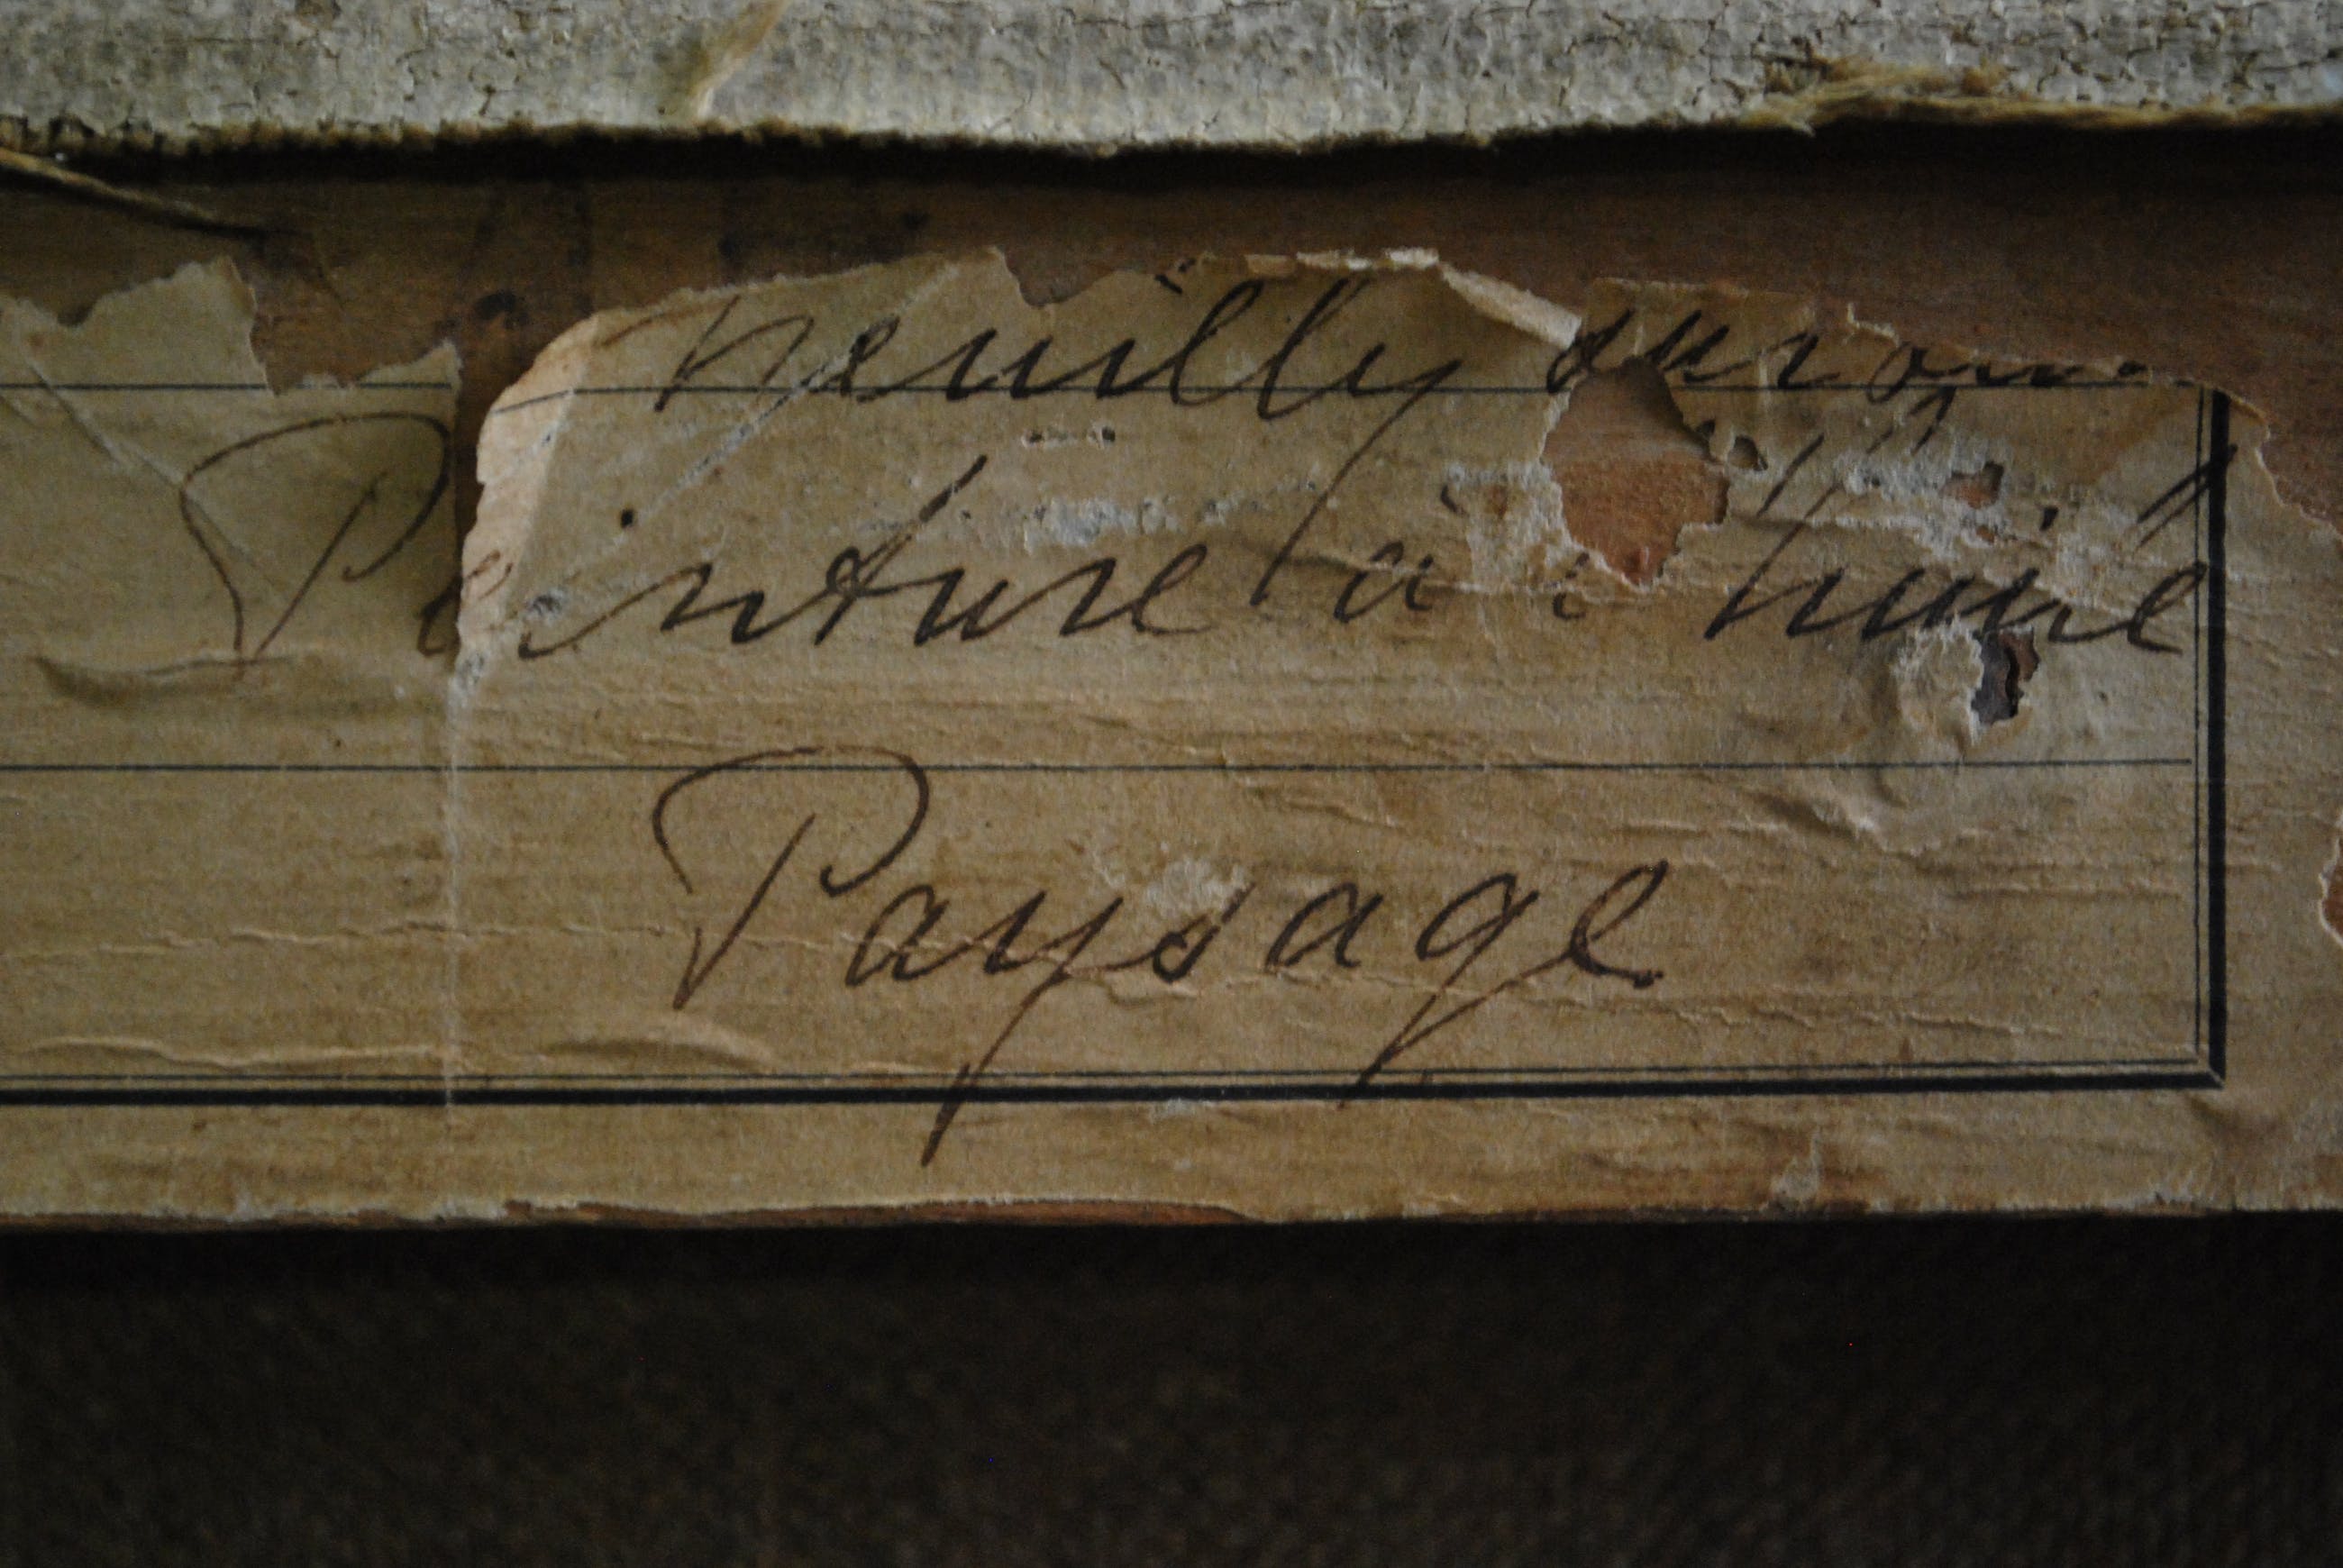 Neuilly sur
Peinture à l'huile
Paysage